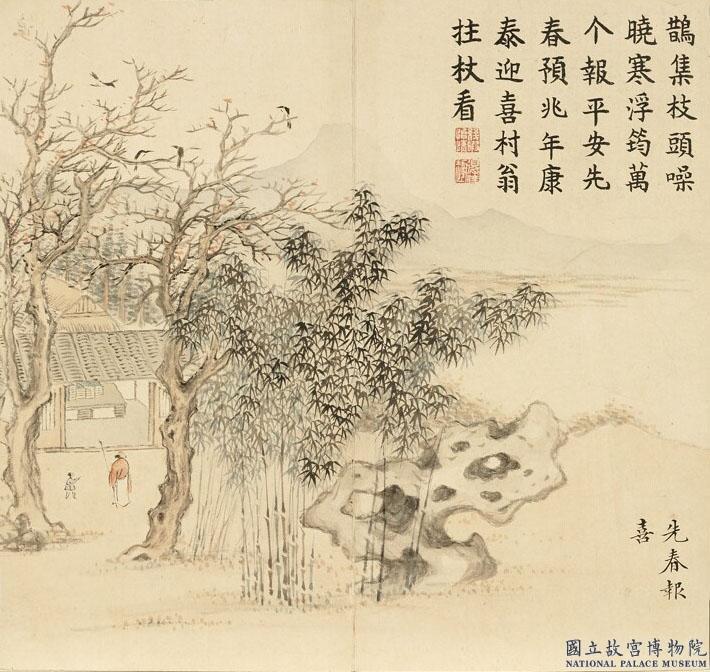 鵲集枝頭噪
曉寒浮筠萬
个報平安先
春預兆年康
泰迎喜村翁
拄杖看
先春報
喜
國立故宮博物院
NATIONAL PALACE MUSEUM